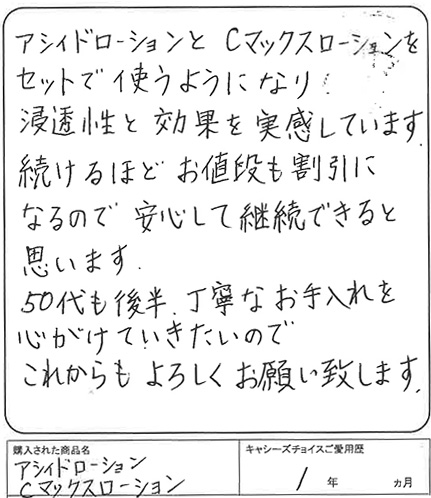 アシィドローションと Cマックスローションを
セットで使うようになり
浸透性と効果を実感しています.
続けるほど お値段も割引に
なるので 安心して継続できると
思います.
50代も後半.丁寧なお手入れを
心がけていきたいので
これからも よろしくお願い致します.
購入された商品名
アシィドローション
Cマックスローション
キャシーズチョイスご愛用歴
1 年 ヵ月